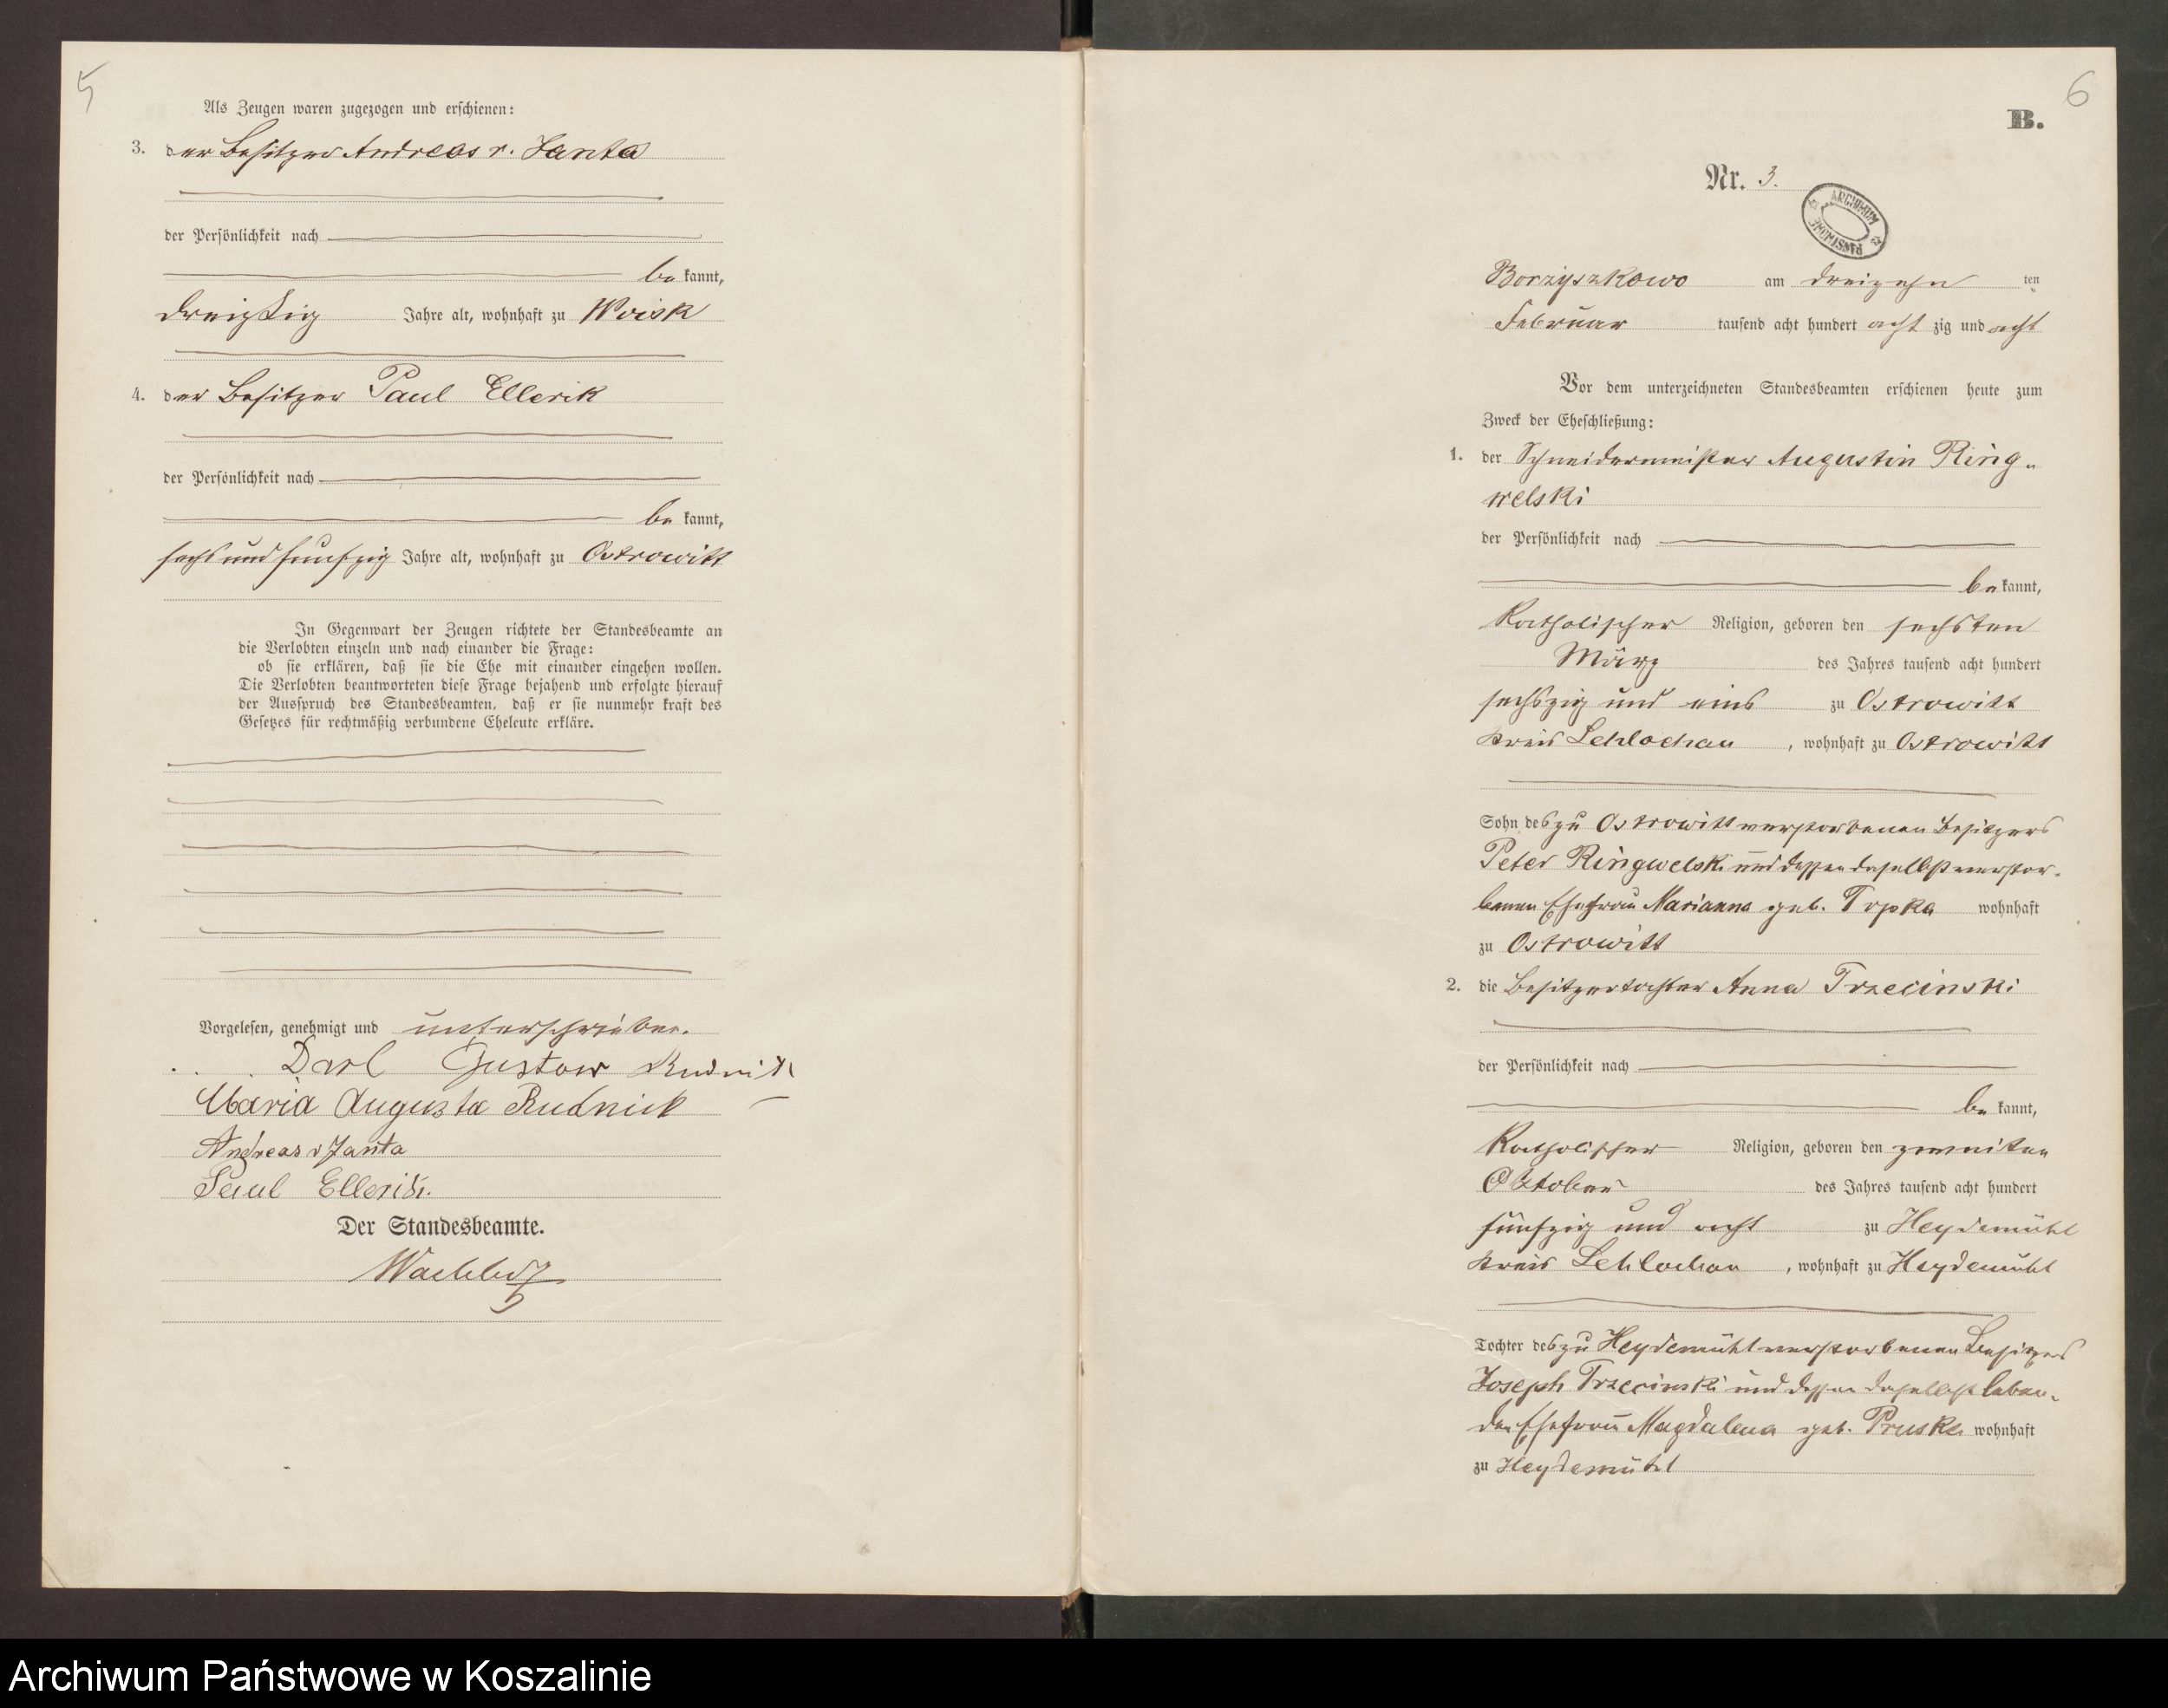 5
Als Zeugen waren zugezogen und erschienen:
3. der Besitzer Andreas v. Janta
der Persönlichkeit nach
be kannt,
dreißig Jahre alt, wohnhaft zu Woisk
4. der Besitzer Paul Ellerik
der Persönlichkeit nach
be kannt,
sechs und fünfzig Jahre alt, wohnhaft zu Ostrowitt
In Gegenwart der Zeugen richtete der Standesbeamte an
die Verlobten einzeln und nach einander die Frage:
ob sie erklären, daß sie die Ehe mit einander eingehen wollen.
Die Verlobten beantworteten diese Frage bejahend und erfolgte hierauf
der Ausspruch des Standesbeamten, daß er sie nunmehr kraft des
Gesetzes für rechtmäßig verbundene Eheleute erkläre.
Vorgelesen, genehmigt und unterschrieben.
Gustow Rudnik
Maria Augusta Rudnick
Andreas v Janta
Paul Ellerik.
Der Standesbeamte.
6
B.
Nr. 3.
ARCHIWUM PAŃSTWOWE
Borzyszkowo am dreizehn ten
Februar tausend acht hundert acht zig und acht
Vor dem unterzeichneten Standesbeamten erschienen heute zum
Zweck der Eheschließung:
1. der Schneidermeister Augustin Ring-
welski
der Persönlichkeit nach
be kannt,
Katholischer Religion, geboren den sechsten
März des Jahres tausend acht hundert
sechszig und eins zu Ostrowitt
Kreis Schlochau , wohnhaft zu Ostrowitt
Sohn des zu Ostrowitt verstorbenen Besitzers
Peter Ringwelski und dessen daselbst verstor-
benen Ehefrau Marianna geb. wohnhaft
zu Ostrowitt
2. die Besitzertochter Anna Trzecinski
der Persönlichkeit nach
be kannt,
Katholischer Religion, geboren den zweiten
Oktober des Jahres tausend acht hundert
fünfzig und acht zu Heydemühl
Kreis Schlochau , wohnhaft zu Heydemühl
Tochter des zu Heydemühl verstorbenen Besitzers
Joseph Trzecinski und dessen daselbst leben-
den Ehefrau Magdalena geb. Pruska wohnhaft
zu Heydemühl
Archiwum Państwowe w Koszalinie